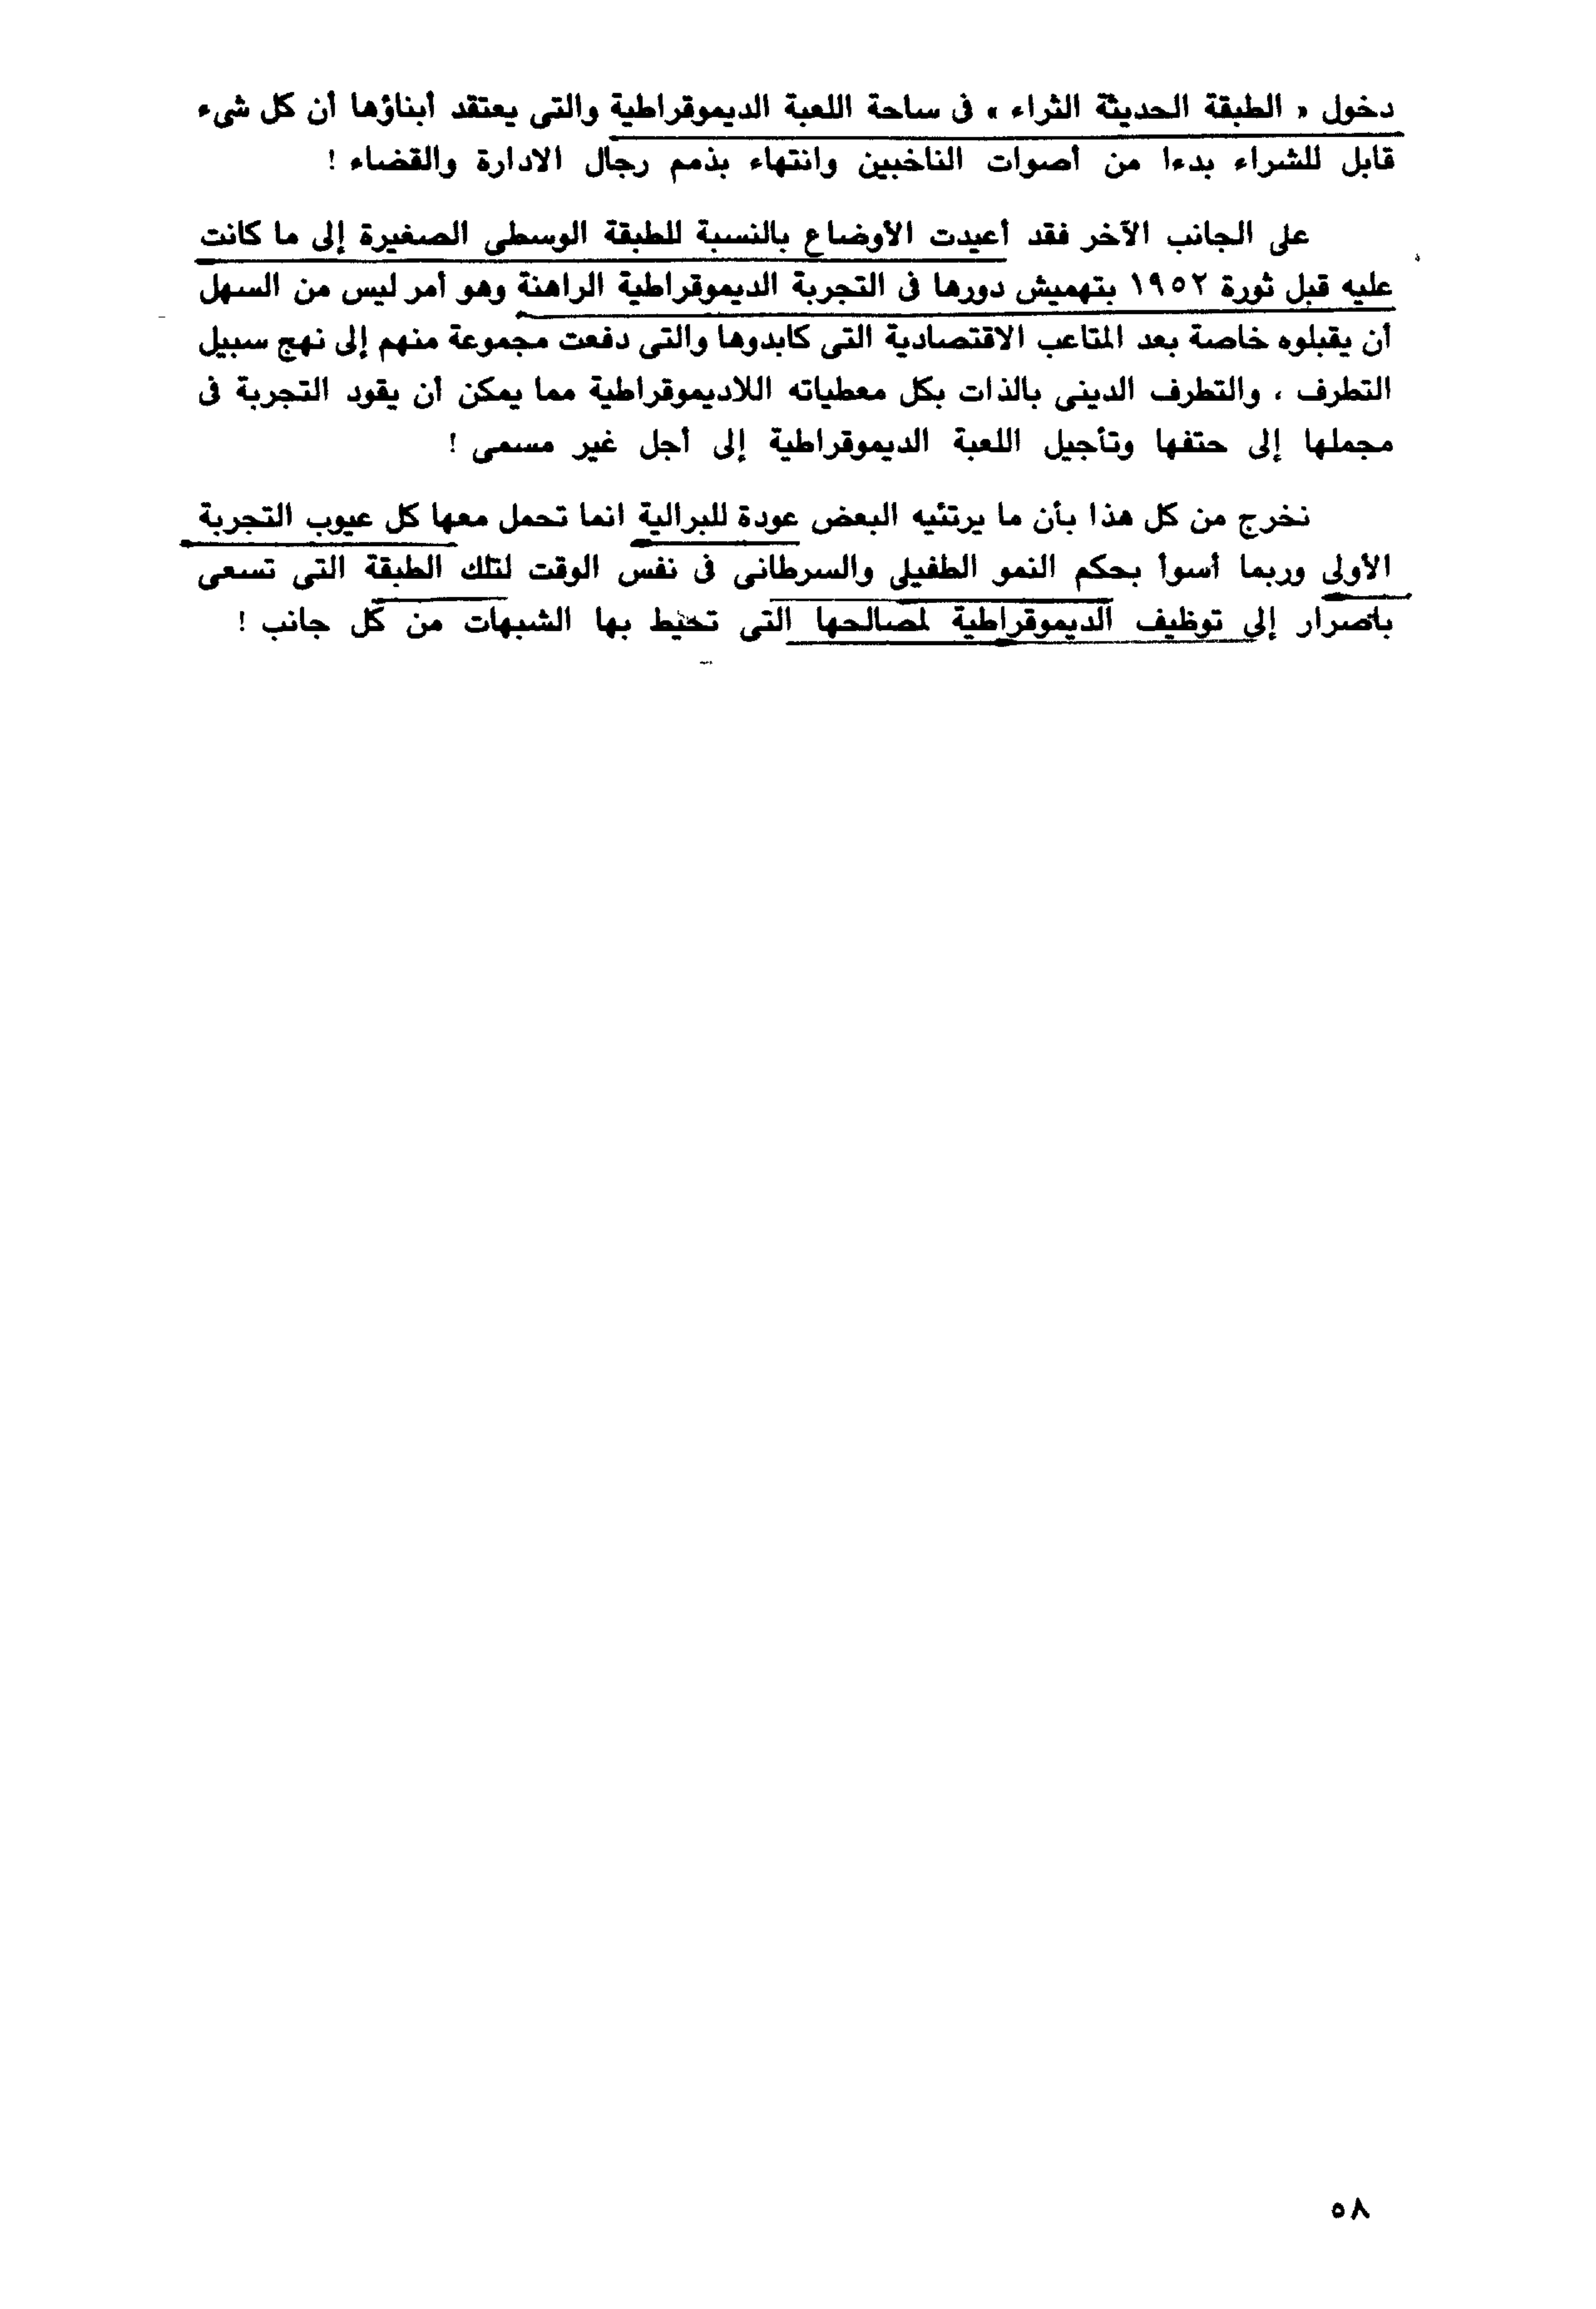 دخول « الطبقة الحديثة الثراء » فى ساحة اللعبة الديموقراطية والتى يعتقد أبناؤها أن كل شىء
قابل للشراء بدءا من أصوات الناخبين وانتهاء بذمم رجال الادارة والقضاء !
على الجانب الآخر فقد أعيدت الأوضاع بالنسبة للطبقة الوسطى الصغيرة إلى ما كانت
عليه قبل ثورة ١٩٥٢ بتهميش دورها فى التجربة الديموقراطية الراهنة وهو أمر ليس من السهل
أن يقبلوه خاصة بعد المتاعب الاقتصادية التى كابدوها والتى دفعت مجموعة منهم إلى نهج سبيل
التطرف ، والتطرف الدينى بالذات بكل معطياته اللاديموقراطية مما يمكن أن يقود التجربة فى
مجملها إلى حتفها وتأجيل اللعبة الديموقراطية إلى أجل غير مسمى !
نخرج من كل هذا بأن ما يرتئيه البعض عودة للبرالية انما تحمل معها كل عيوب التجربة
الأولى وربما أسوأ بحكم النمو الطفيلى والسرطانى فى نفس الوقت لتلك الطبقة التى تسعى
باصرار إلى توظيف الديموقراطية لمصالحها التى تحيط بها الشبهات من كل جانب !
٥٨